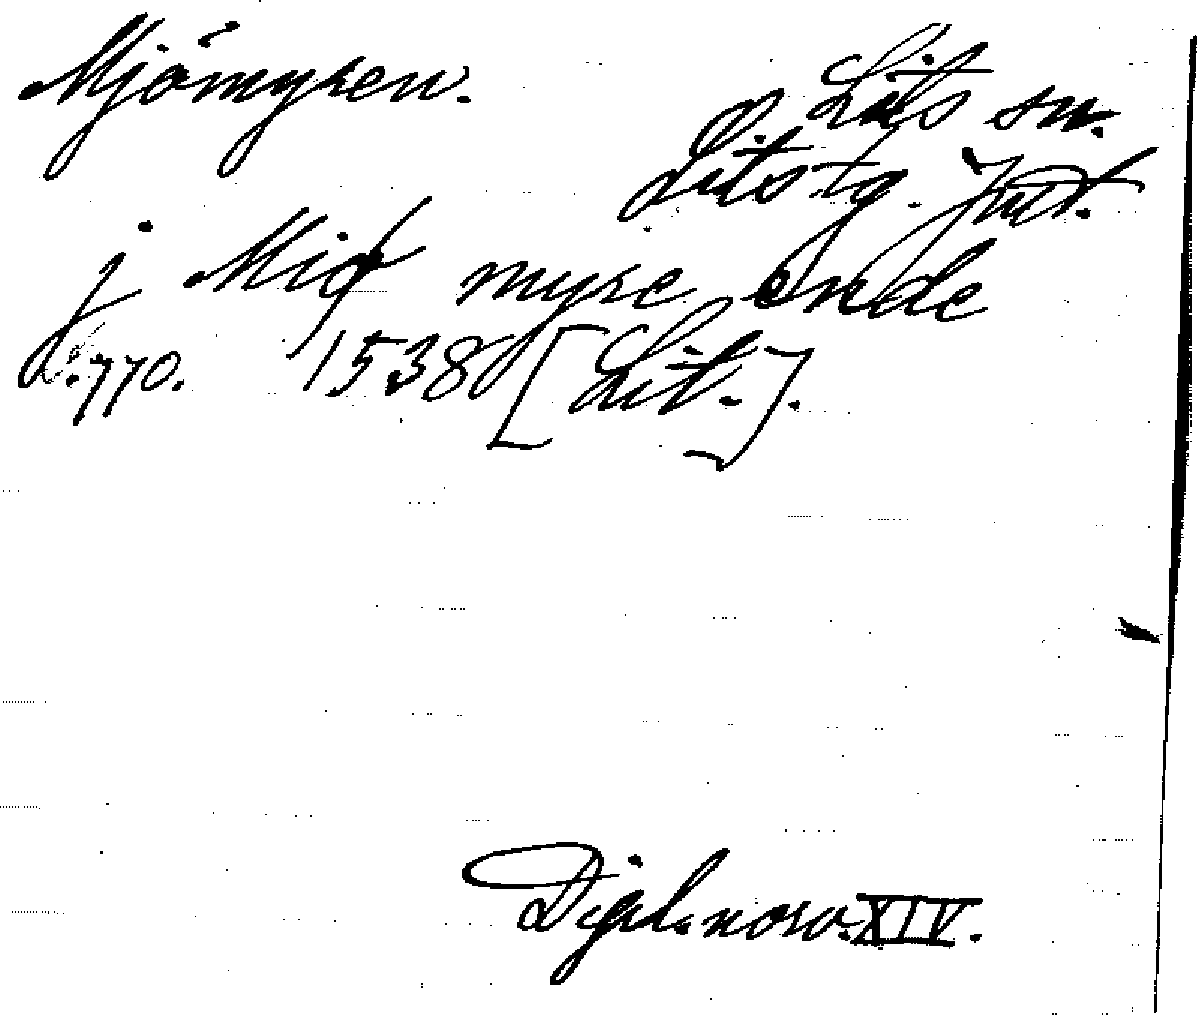 Mjömyren.
Lits sn.
Lits tg. Jmt.
j Miø myre ende
s. 770. 1538 [Lit.].
Dipl. norv. XIV.